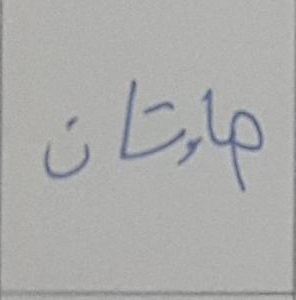 هاوتان